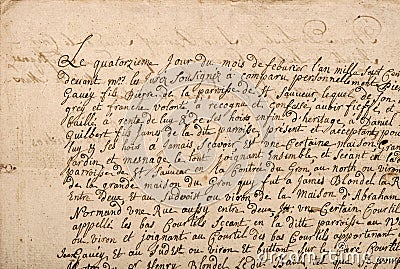 Le quatorzieme Jour du mois de feburier L'an mille Sept Cent
devant mrs les Jurez Soussignez à comparu personnellement Pier
Gavey fils Pierre de la paroisse de St Sauveur lequel de son
grey et franche volonté à recognu et Confessé aubir fieffé et
baillé à rente de luy & de ses hoirs enfin d'heritage à Daniel
Guilbert fils James de la dite paroisse present et acceptant pou
luy & ses hoirs à Jamais Scavoir Est une Certaine maison
Jardin et mesnage le tout Joignant Ensemble et Seant en la
paroisse de St Sauveur en la Contree du Gron au nord ou viron
de la grande maison du Gron quy fut à James Blondel La R
Entre Deux Et au Sudevoit ou viron de la Maison d'Abraham
Normand une Rue aussy entre deux Et une Certain Courtil
appellé les bas Courtils Seant en la ditte parroisse au
ou viron et Joignant au Courtil des bas Courtils appartenant
Jean Gavey Et au Sudest ou viron et buttant sur le
Et Henry Blondel